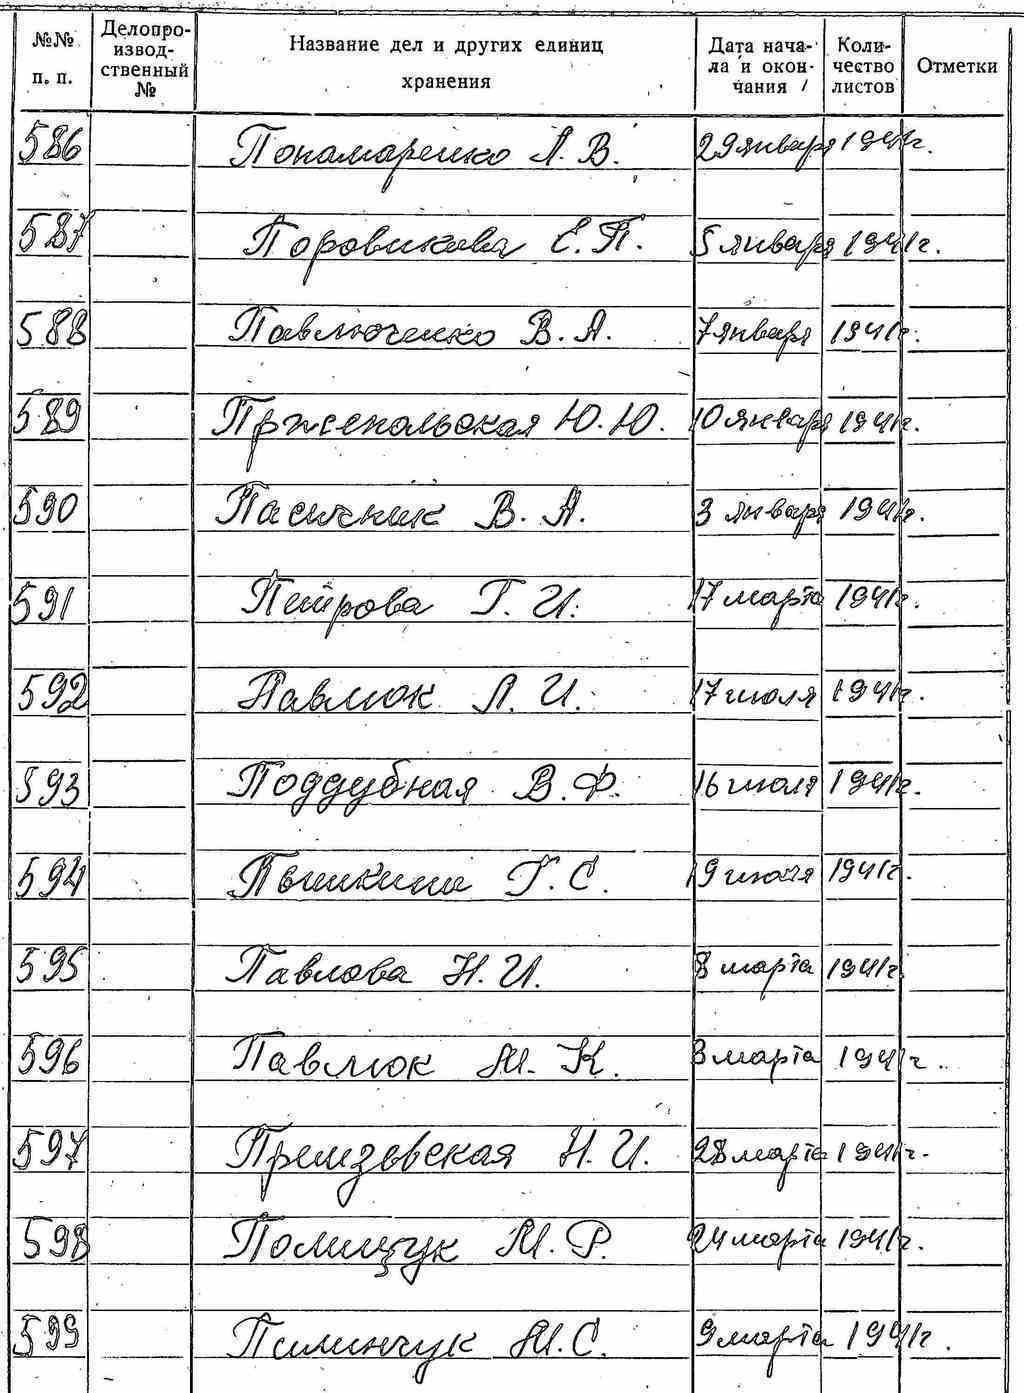 №№ п. п. Делопроизводственный № Название дел и других единиц хранения Дата начала и окончания Количество листов Отметки
586 Пономаренко Л. В. 29 января 1941г.
587 Поровикова Е. П. 5 января 1941г.
588 Павлюченко В. А. 7 января 1941г.
589 Пржепольская Ю. Ю. 10 января 1941г.
590 Пасичник В. А. 3 января 1941г.
591 Петрова Г. И. 17 марта 1941г.
592 Павлюк Л. И. 17 июля 1941г.
593 Поддубная В. Ф. 16 июля 1941г.
594 Г. С. 19 июля 1941г.
595 Павлова Н. И. 8 марта 1941г.
596 Павлюк М. К. 8 марта 1941г.
597 Н. И. 28 марта 1941г.
598 Полищук М. Р. 24 марта 1941г.
599 Пилинчук М. С. 9 марта 1941г.